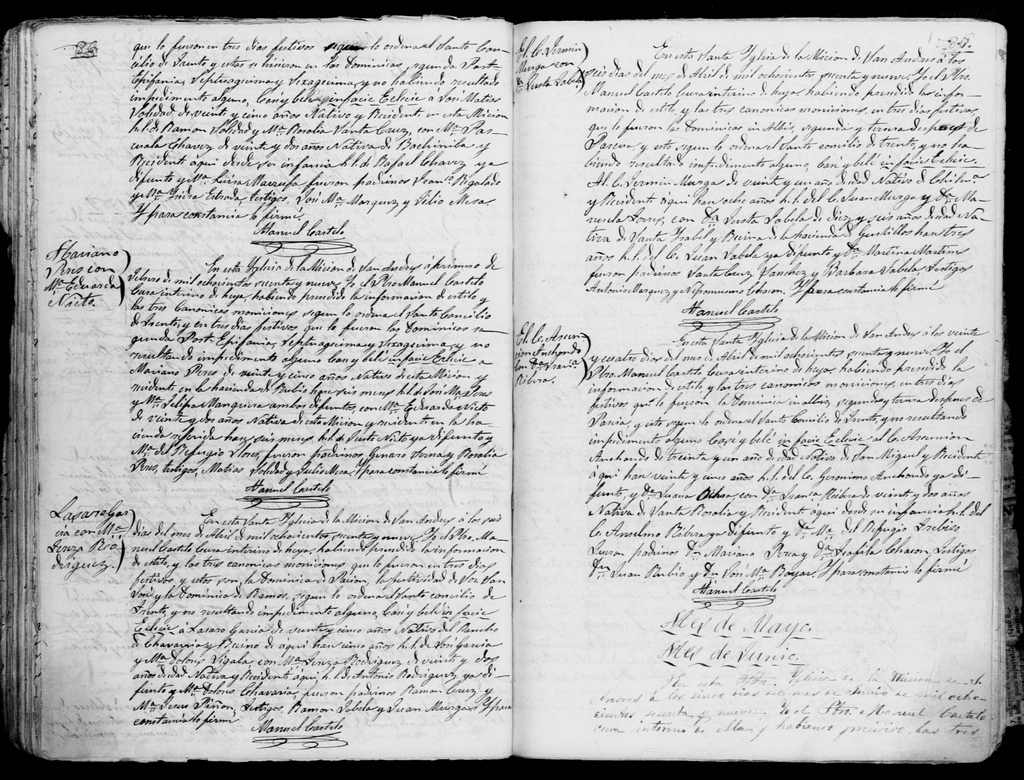 que le fueron en tres dias festivos segun lo ordena el Santo Con-
cilio de Trento y estos se hicieron en las Dominicas, segunda Post
Epifanias, Septuagesima, y Sexagesima, y no habiendo resultado
impedimento alguno, Casé y belé in facie Eclecie á José Matias
Solidad de veinte y cinco años Nativo y Recidente en esta Micion
h. l. de Ramon Solidad y Ma. Rosalia Santa Cruz, con Ma. Pas-
cuala Chavez de veinte y dos años Nativa de Bachiniba y
Recidente aqui desde su infancia h. l. de Rafael Chavez ya
difunto y Ma. Luisa fueron padrinos Juan Regalado
y Ma. Indra Estrada, testigos, José Ma. Marquez y Julio Mesa
Y para constancia lo firmé
Manuel Castelo
Mariano
Pres con
Ma. Eduarda
Nieto.
En esta Yglecia de la Micion de San Andres á primero de
Febrero de mil ochocientos secenta y nueve. Yo el Pbro. Manuel Castelo
Cura interino de hoja, habiendo presedido la informacion de estilo y
las tres Canonicas moniciones, segun lo ordena el Santo Concilio
de Trento, y en tres dias festivos que lo fueron las Dominicas se-
gunda Post. Epifania, Septuagesima y Sexagesima, y no
resultando impedimento alguno Casé y belé in facie Eclecie a
Mariano Pres. de veinte y cinco años Nativo de esta Micion y
recidente en la hacienda de Rubio han seis meses h. l. de José Ma. Pres
y Ma. Felipa Manguera ambos difuntos, con Ma. Eduarda Nieto
de veinte y dos años Nativa de esta Micion y recidente en la ha-
cienda referida han seis meses h. l. de Nieto ya difunto y
Ma. del Refugio Flores, fueron padrinos, Genaro Serna y Rosalia
Pres, testigos, Matias Solidad y Julio Mesa, Y para constancia lo firmé
Manuel Castelo
Lasaro Gar
cia con Ma.
Ro
driguez.
En esta Santa Yglecia de la Micion de San Andres á los seis
dias del mes de Abril de mil ochocientos, secenta y nueve, Yo el Pbro. Ma-
nuel Castelo Cura interino de hoja, habiendo presedido la informacion
de estilo, y las tres canonicas moniciones, que lo fueron en tres dias
festivos, y estos son, la Dominica de Pacion, la festividad de Sor. San
José y la Dominica de Ramos, segun lo ordena el Santo concilio de
Trento, y no resultando impedimento alguno, Casé y belé in facie
Eclecie á Lasaro Garcia de veinte y cinco años Nativo del Rancho
de Chavarria y Becino de aqui han cinco años h. l. de José Garcia
y Ma. Dolores con Ma. Rodriguez de veinte y dos
años de edad Nativa y Recidente aqui, h. l. de Antonio Rodriguez ya di-
funto y Ma. Dolores Chavarria, fueron padrinos Ramon Cruz, y
Ma. Jesus Piñon, testigos Ramon Varela y Juan Murga, Y para
constancia lo firmé
Manuel Castelo
El C. Fermin
Murga con
Da. Justa Varela
En esta Santa Yglecia de la Micion de San Andres á los
seis dias del mes de Abril de mil ochocientos secenta y nueve, Yo el Pbro.
Manuel Castelo Cura interino de hoja, habiendo presedido la infor-
macion de estilo y las tres canonicas moniciones, en tres dias festivos
que lo fueron las Dominicas in Albis, segunda y tercera despues de
Pascua, y esto segun lo ordena el Santo concilio de Trento, y no ha-
biendo resultado impedimento alguno, Casé y belé in facie Eclecie.
Al C. Fermin Murga de veinte y un año de edad Nativo de Chihua.
y Recidente aqui han ocho años h. l. del C. Juan Murga y Da. Ma-
nuela Torres, con Da. Justa Varela de diez y seis años de edad Na-
tiva de Santa Ysabel y Becina de la hacienda de Bustillos han tres
años h. l. del C. Juan Varela ya difunto y Da. Martina Martines
fueron padrinos Santa Cruz Sanchez y Barbara Varela, testigos
Antonio Marquez y Nepomuceno Chacon. Y para constancia lo firmé
Manuel Castelo
El C. Asen
cion Anchondo
con Da. Juana
Ribera.
En esta Santa Yglecia de la Micion de San Andres á los veinte
y cuatro dias del mes de Abril de mil ochocientos secenta y nueve. Yo el
Pbro. Manuel Castelo Cura interino de hoja, habiendo presedido la
informacion de estilo y las tres canonicas moniciones, en tres dias
festivos que lo fueron la Dominica in albis, segunda y tercera despues de
Pascua, y esto segun lo ordena el Santo Concilio de Trento, y no resultando
impedimento alguno Casé y belé in facie Eclecie al C. Asencion
Anchondo de treinta y un año de edad Nativo de San Miguel y Recidente
aqui han veinte y cinco años h. l. del C. Geronimo Anchondo ya di-
funto, y Da. Juana Ochoa, con Da. Juana Ribera de veinte y dos años
Nativa de Santa Rosalia y Recidente aqui desde su infancia h. l. del
C. Anselmo Ribera ya difunto y Da. Ma. del Refugio Trebiso
fueron padrinos Dn. Mariano Perea y Da. Teofila Chacon, testigos
Dn. Juan Rubio y Dn. José Ma. Bayas. Y para constancia lo firmé
Manuel Castelo
Mes de Mayo.
Mes de Junio.
En esta Sta. Yglecia de la Micion de S.
Andres á los cinco dias del mes de Junio de mil ocho-
cientos secenta y nueve. Yo el Pbro. Manuel Castelo
cura interino de ella y habiendo presedido las tres